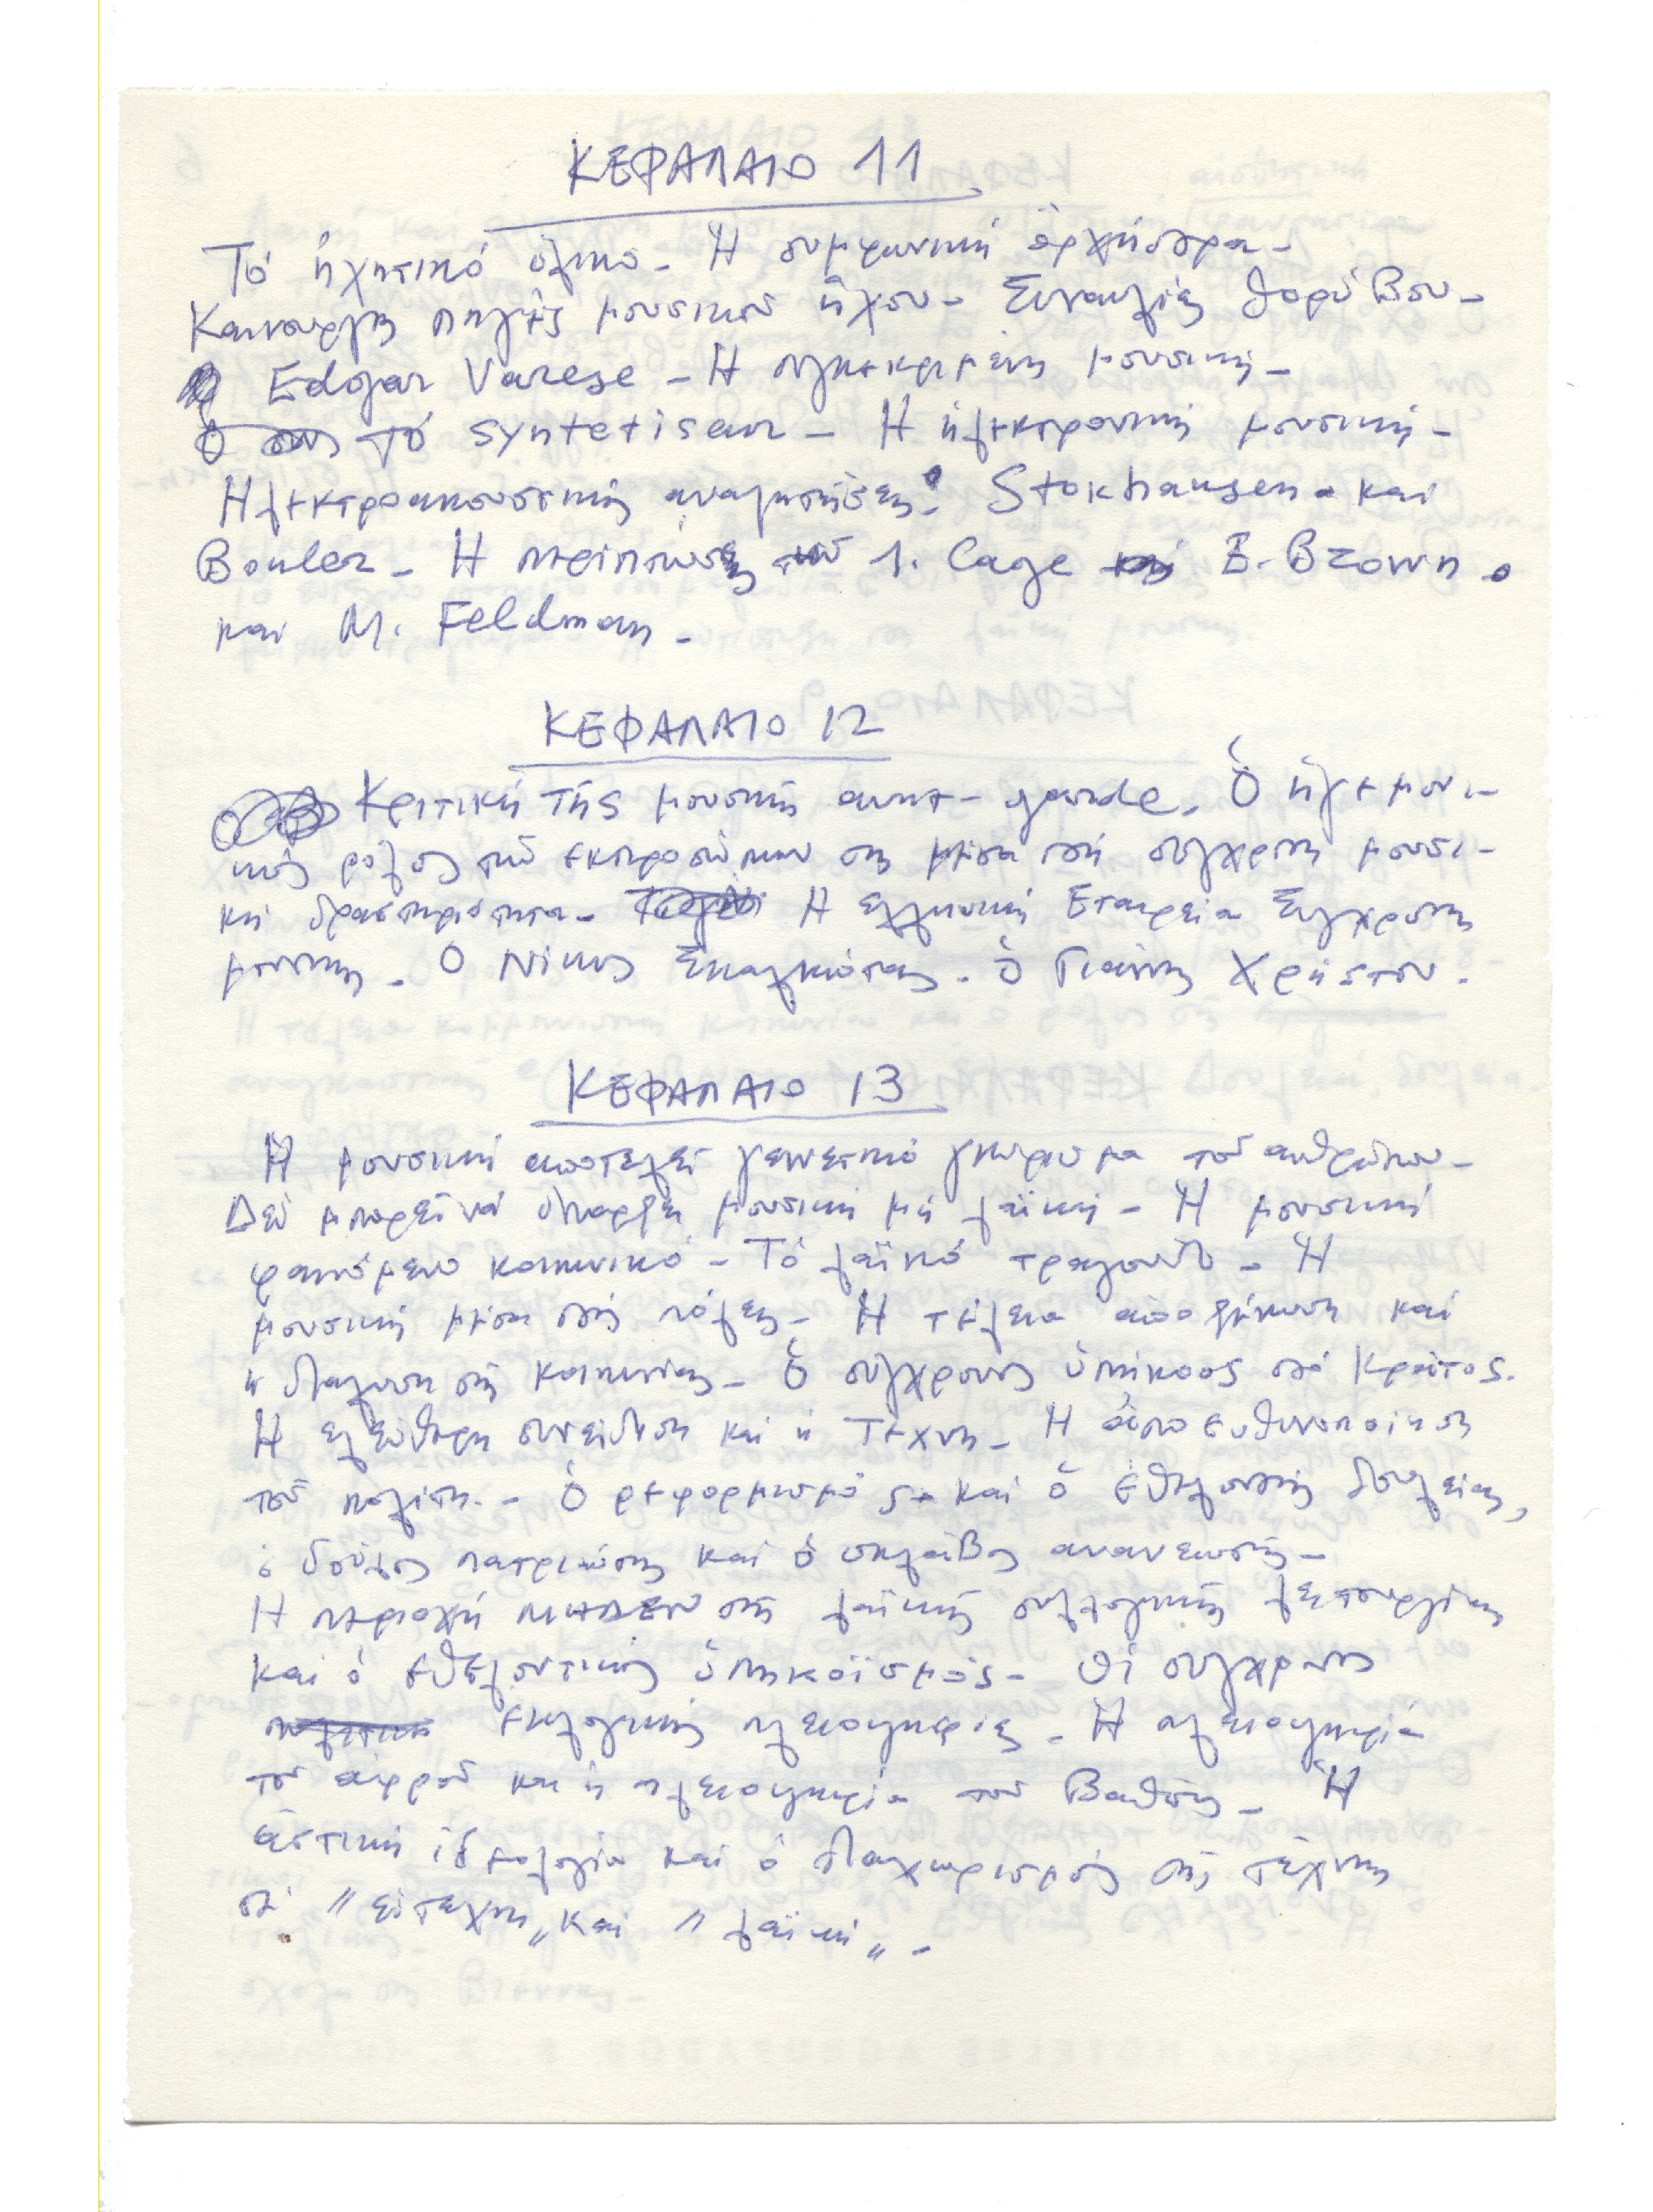 ΚΕΦΑΛΑΙΟ 11
Τό ἠχητικό ὑλικο - Ἡ συμφωνική ὀρχήστρα -
Καινουργιες πηγές μουσικοῦ ἤχου - Συναυλίες θορύβου -
Edgar Varese - Ἡ συγκεκριμένη μουσική -
τό syntetiseur - Ἡ ἠλεκτρονική μουσική -
Ηλεκτροακουστικές αναζητήσεις: Stokhausen - και
Boulez - Η περίπτωση τοῦ J. Cage E. Brown -
και M. Feldman -
ΚΕΦΑΛΑΙΟ 12
Κριτική τῆς μουσικῆς avant-garde. Ὁ ἡγεμονι-
κός ρόλος τῶν εκπροσώπων της μέσα στή σύγχρονη μουσι-
κή δραστηριότητα - Η Ελληνική Εταιρεία Σύγχρονης
μουσικης - Ο Νίκος Σκαλκώτας - ὁ Γιάννης Χρήστου.
ΚΕΦΑΛΑΙΟ 13
Ἡ μουσική αποτελεῖ γενετικό γνώρισμα τοῦ ανθρώπου -
Δέν μπορεῖ νά ὑπαρξει μουσική μή λαϊκή - Ἡ μουσική
φαινόμενο κοινωνικό - Τό λαϊκό τραγουδι - Ἡ
μουσική μέσα στίς πόλεις - Ἡ τέλεια αποξένωση καί
ἡ διαλυση τῆς κοινωνίας - Ὁ σύγχρονος ὑπήκοος στό Κράτος.
Ἡ ελεύθερη συνείδηση καί ἡ Τέχνη - Ἡ ἀποευθυνοποίηση
τοῦ πολίτη - Ὁ ρεφορμισμός και ὁ ἐθελοντής δουλείας,
ὁ δοῦλος πατριώτης καί ὁ σκλάβος ανανεωτής -
Ἡ περιοχή ΜΗΔΕΝ τῆς λαϊκῆς συλλογικῆς λειτουργίας
καί ὁ εθελοντικός ὑπηκοϊσμός - Οἱ σύγχρονες
εκλογικές πλειοψηφίες - Ἡ πλειοψηφία
τοῦ αφροῦ και ἡ πλειοψηφία τοῦ Βαθους - Ἡ
ἀστική ἰδεολογία καί ὁ διαχωρισμός τῆς τέχνης
σέ "εντεχνη" καί "λαϊκή" -